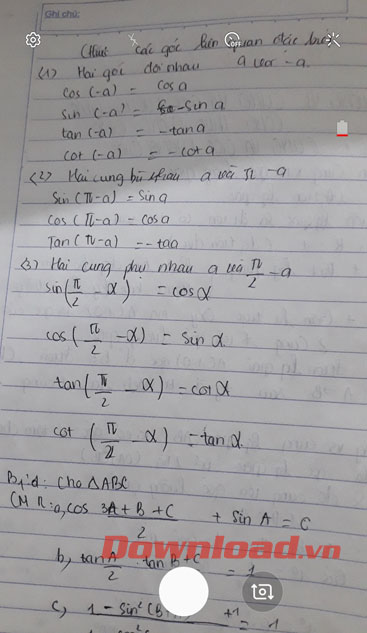 Ghi chú:
các góc liên quan đặc biệt
(1) Hai góc đối nhau a và -a
cos (-a) = cosa
sin (-a) = -sin a
tan (-a) = -tana
cot (-a) = -cota
(2) Hai cung bù nhau a và π -a
sin(π-a) = sina
cos(π-a) = cosa
Tan(π-a) = -taa
(3) Hai cung phụ nhau a và π/2 -a
sin(π/2 - α) = cosα
cos(π/2 -α) = sinα
tan(π/2 - α) = cotα
cot (π/2 - α) = tanα
Cho △ABC
CMR: a, cos 3A + B + C / 2 + sin A = C
b, tan A/2 . tan B+C = 1
Download.vn
c, 1 - sin² (B+ +1 = 1